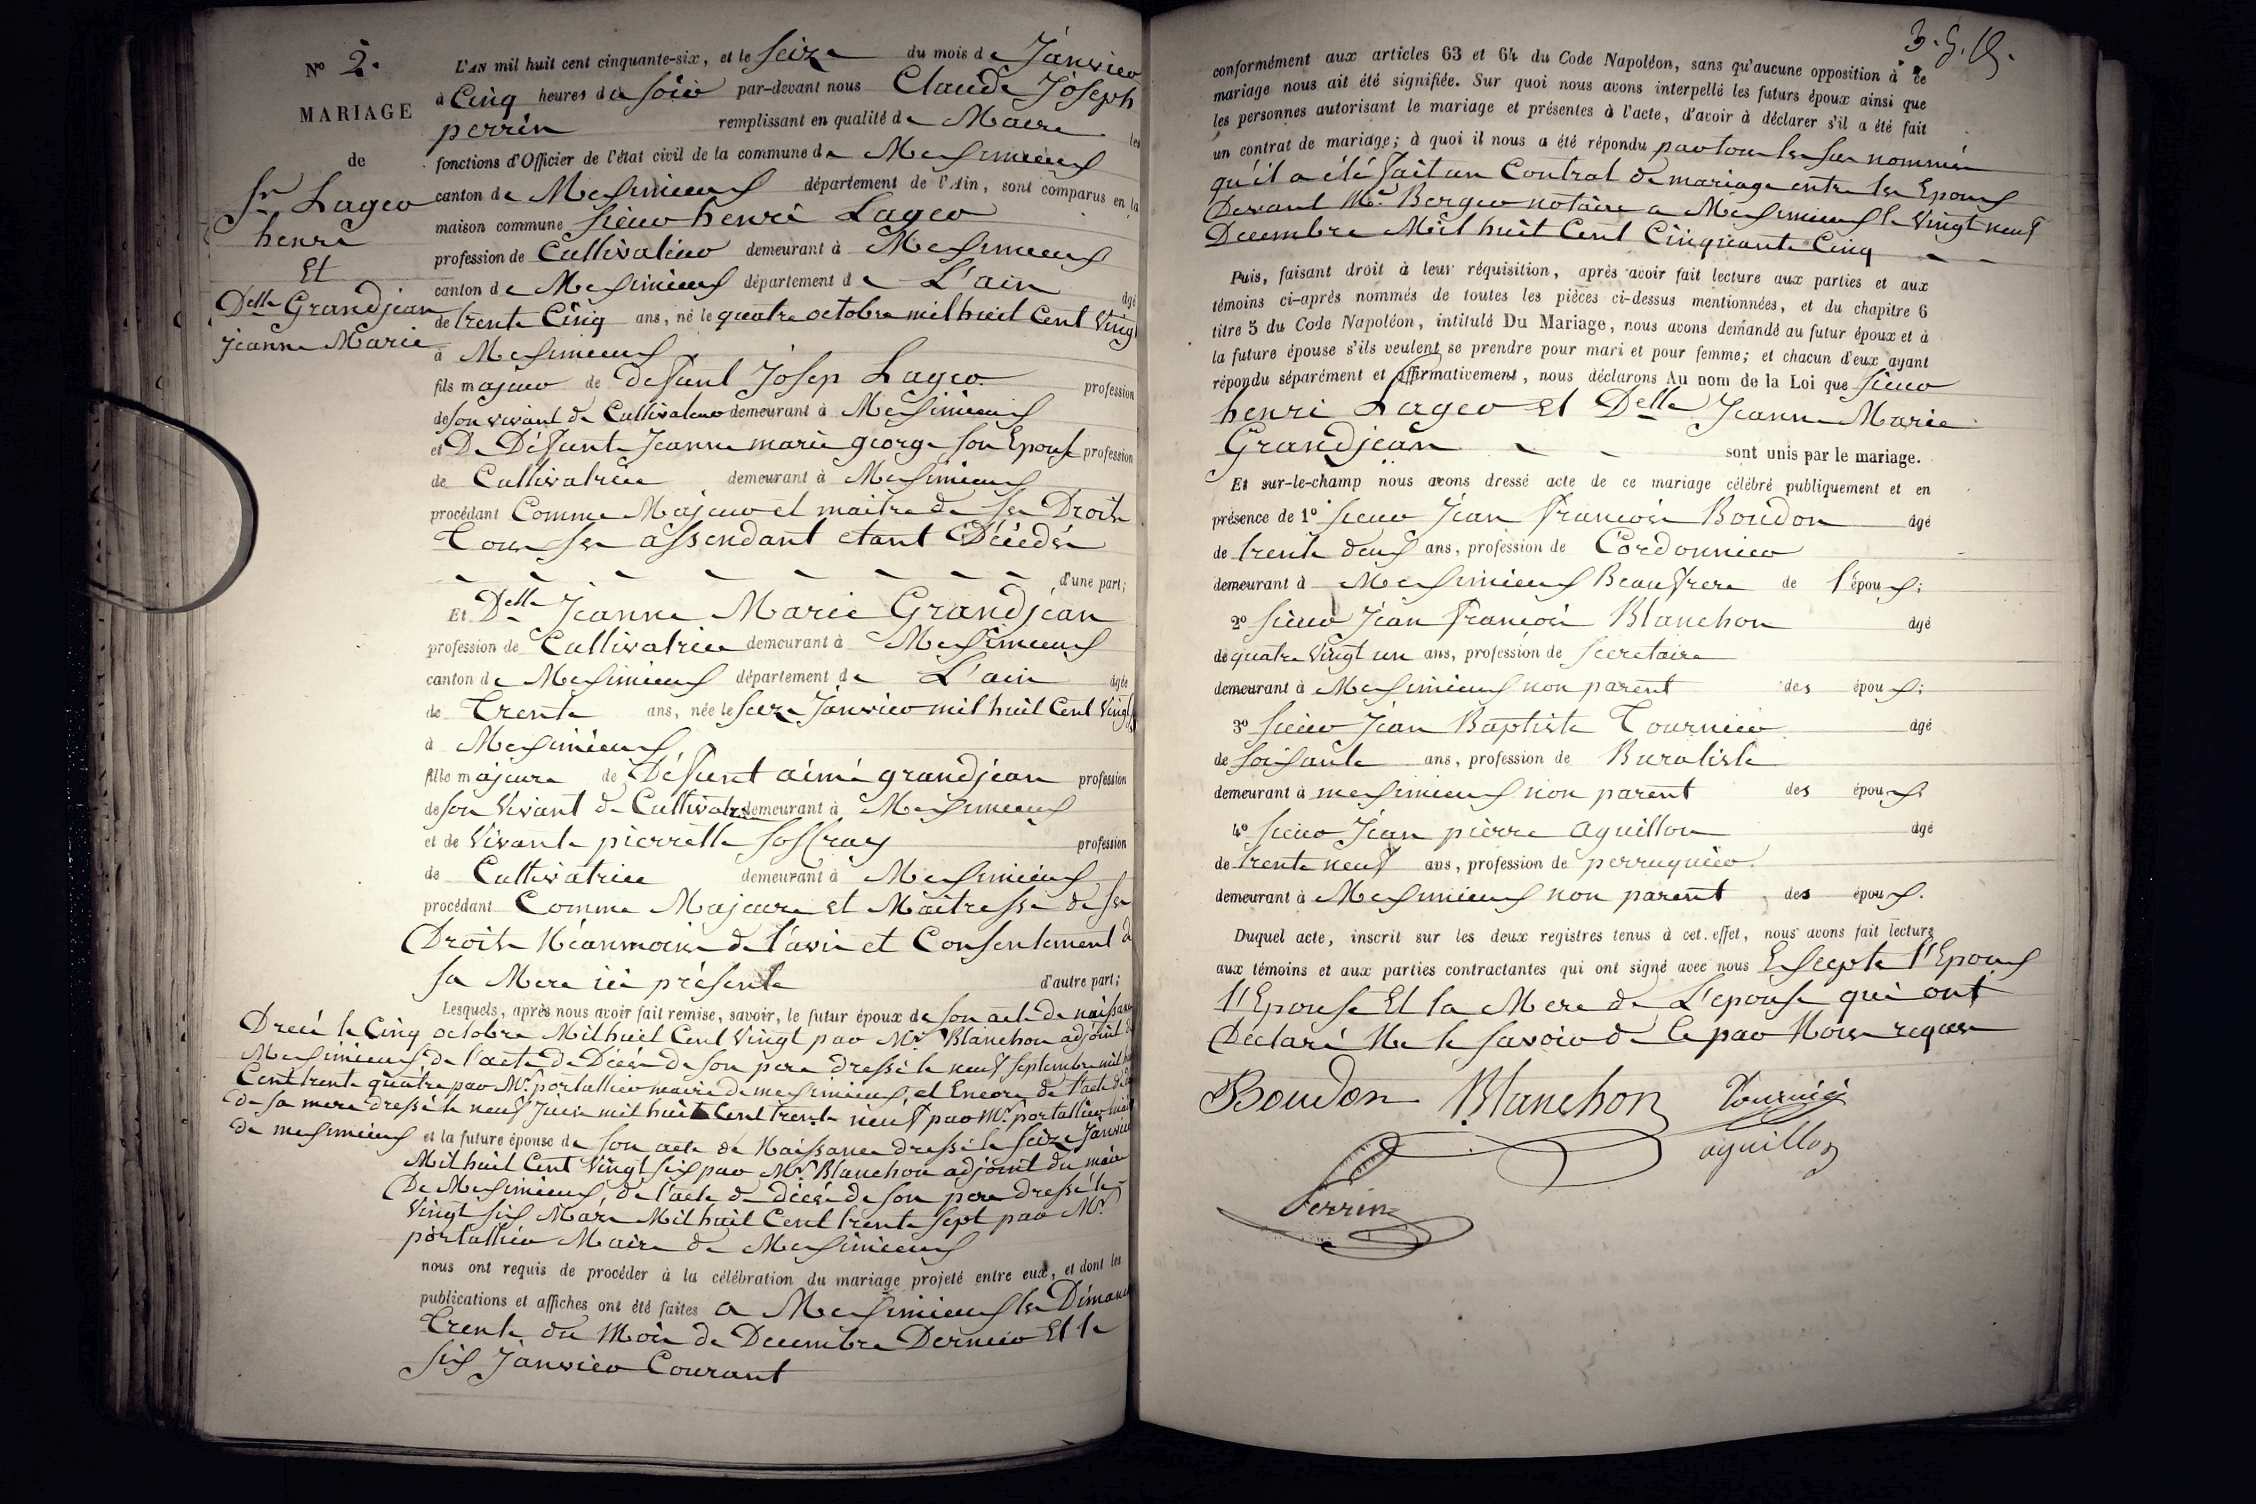 N° 2.
MARIAGE
de
Sr Lager
henri
Et
Delle Grandjean
jeanne Marie
L'AN mil huit cent cinquante-six, et le Seize du mois de Janvier
à Cinq heures du soir par-devant nous Claude Joseph
perrin remplissant en qualité de Maire les
fonctions d'Officier de l'état civil de la commune de Meximieux
canton de Meximieux département de l'Ain, sont comparus en la
maison commune sieur henri Lager
profession de Cultivateur demeurant à Meximieux
canton de Meximieux département de L'ain âgé
de trente Cinq ans, né le quatre octobre mil huit Cent Vingt
à Meximieux
fils majeur de defunt Josep Lager profession
de son vivant de Cultivateur demeurant à Meximieux
et De Défunte Jeanne marie george son Epouse profession
de Cultivatrice demeurant à Meximieux
procédant Comme Majeur et maitre de ses Droits
Tous ses assendant etant Décédés
d'une part;
Et Delle Jeanne Marie Grandjean
profession de Cultivatrice demeurant à Meximieux
canton de Meximieux département de L'ain âgée
de Trente ans, née le seize Janvier mil huit Cent Vingt
à Meximieux
fille majeure de Défunt aimé grandjean profession
de son Vivant de Cultivateur demeurant à Meximieux
et de Vivante pierrette profession
de Cultivatrice demeurant à Meximieux
procédant Comme Majeure et Maitresse de ses
Droits Néanmoins de l'avis et Consentement de
sa Mere ici présente d'autre part;
Lesquels, après nous avoir fait remise, savoir, le futur époux de son acte de naissance
Dressé le Cinq octobre Mil huit Cent Vingt par Mr Blanchon adjoint de
Meximieux de l'acte de Décés de son pere dressé le neuf septembre mil huit
Cent trente quatre par Mr. portallier maire de meximieux, et Encore de l'acte de décés
de sa mere dressé le neuf Juin mil huit Cent trente neuf par Mr. portallier maire
de meximieux et la future épouse de son acte de Naissance dressé le seize Janvier
Mil huit Cent Vingt six par Mr Blanchon adjoint du maire
De Meximieux, de l'acte de décés de son pere dressé le
Vingt six Mars Mil huit Cent trente sept par Mr
portallier Maire de Meximieux
nous ont requis de procéder à la célébration du mariage projeté entre eux, et dont les
publications et affiches ont été faites a Meximieux les Dimanches
Trente du Mois de Decembre Dernier Et le
six Janvier Courant
conformément aux articles 63 et 64 du Code Napoléon, sans qu'aucune opposition à ce
mariage nous ait été signifiée. Sur quoi nous avons interpellé les futurs époux ainsi que
les personnes autorisant le mariage et présentes à l'acte, d'avoir à déclarer s'il a été fait
un contrat de mariage; à quoi il nous a été répondu par tous les sus nommés
qu'il a été fait un Contrat de mariage entre les Epoux
Devant Me. Berger notaire a Meximieux le Vingt neuf
Decembre Mil huit Cent Cinquante Cinq
Puis, faisant droit à leur réquisition, après avoir fait lecture aux parties et aux
témoins ci-après nommés de toutes les pièces ci-dessus mentionnées, et du chapitre 6
titre 5 du Code Napoléon, intitulé Du Mariage, nous avons demandé au futur époux et à
la future épouse s'ils veulent se prendre pour mari et pour femme; et chacun d'eux ayant
répondu séparément et affirmativement, nous déclarons Au nom de la Loi que sieur
henri Lager et Delle Jeanne Marie
Grandjean sont unis par le mariage.
Et sur-le-champ nous avons dressé acte de ce mariage célébré publiquement et en
présence de 1° sieur Jean François Boudon âgé
de trente deux ans, profession de Cordonnier
demeurant à Meximieux Beau frere de l'époux;
2° sieur Jean François Blanchon âgé
de quatre Vingt un ans, profession de secretaire
demeurant à Meximieux non parent des époux;
3° sieur Jean Baptiste Tournier âgé
de soixante ans, profession de Buraliste
demeurant à meximieux non parent des époux;
4° sieur Jean pierre aguillon âgé
de trente neuf ans, profession de perruquier
demeurant à Meximieux non parent des époux.
Duquel acte, inscrit sur les deux registres tenus à cet effet, nous avons fait lecture
aux témoins et aux parties contractantes qui ont signé avec nous Excepte l'Epoux
l'Epouse Et la Mere de L'epouse qui ont
Déclaré Ne le savoir de ce par Nous requis
Boudon Blanchon Tournier
aguillon
Perrin